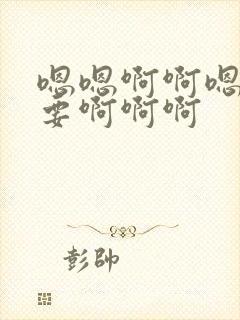 嗯嗯啊啊嗯
要啊啊啊
彭帥